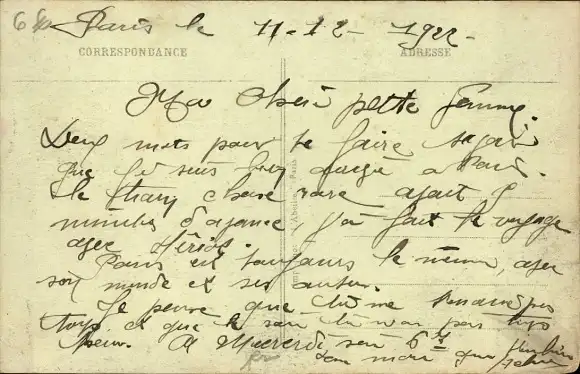 Paris le 11-12-1922-
CORRESPONDANCE ADRESSE
Ma chérie petite femme.
Deux mots pour te faire savoir
que je suis bien arrivé a Paris.
le train chose rare ayant 5
minutes d'avance, j'ai fait le voyage
avec
Paris est toujours le même, avec
son monde et ses autos.
Je pense que tu ne pas
trop et que le tu pas trop
peur. A Mercredi soir 6h
ton mari qui